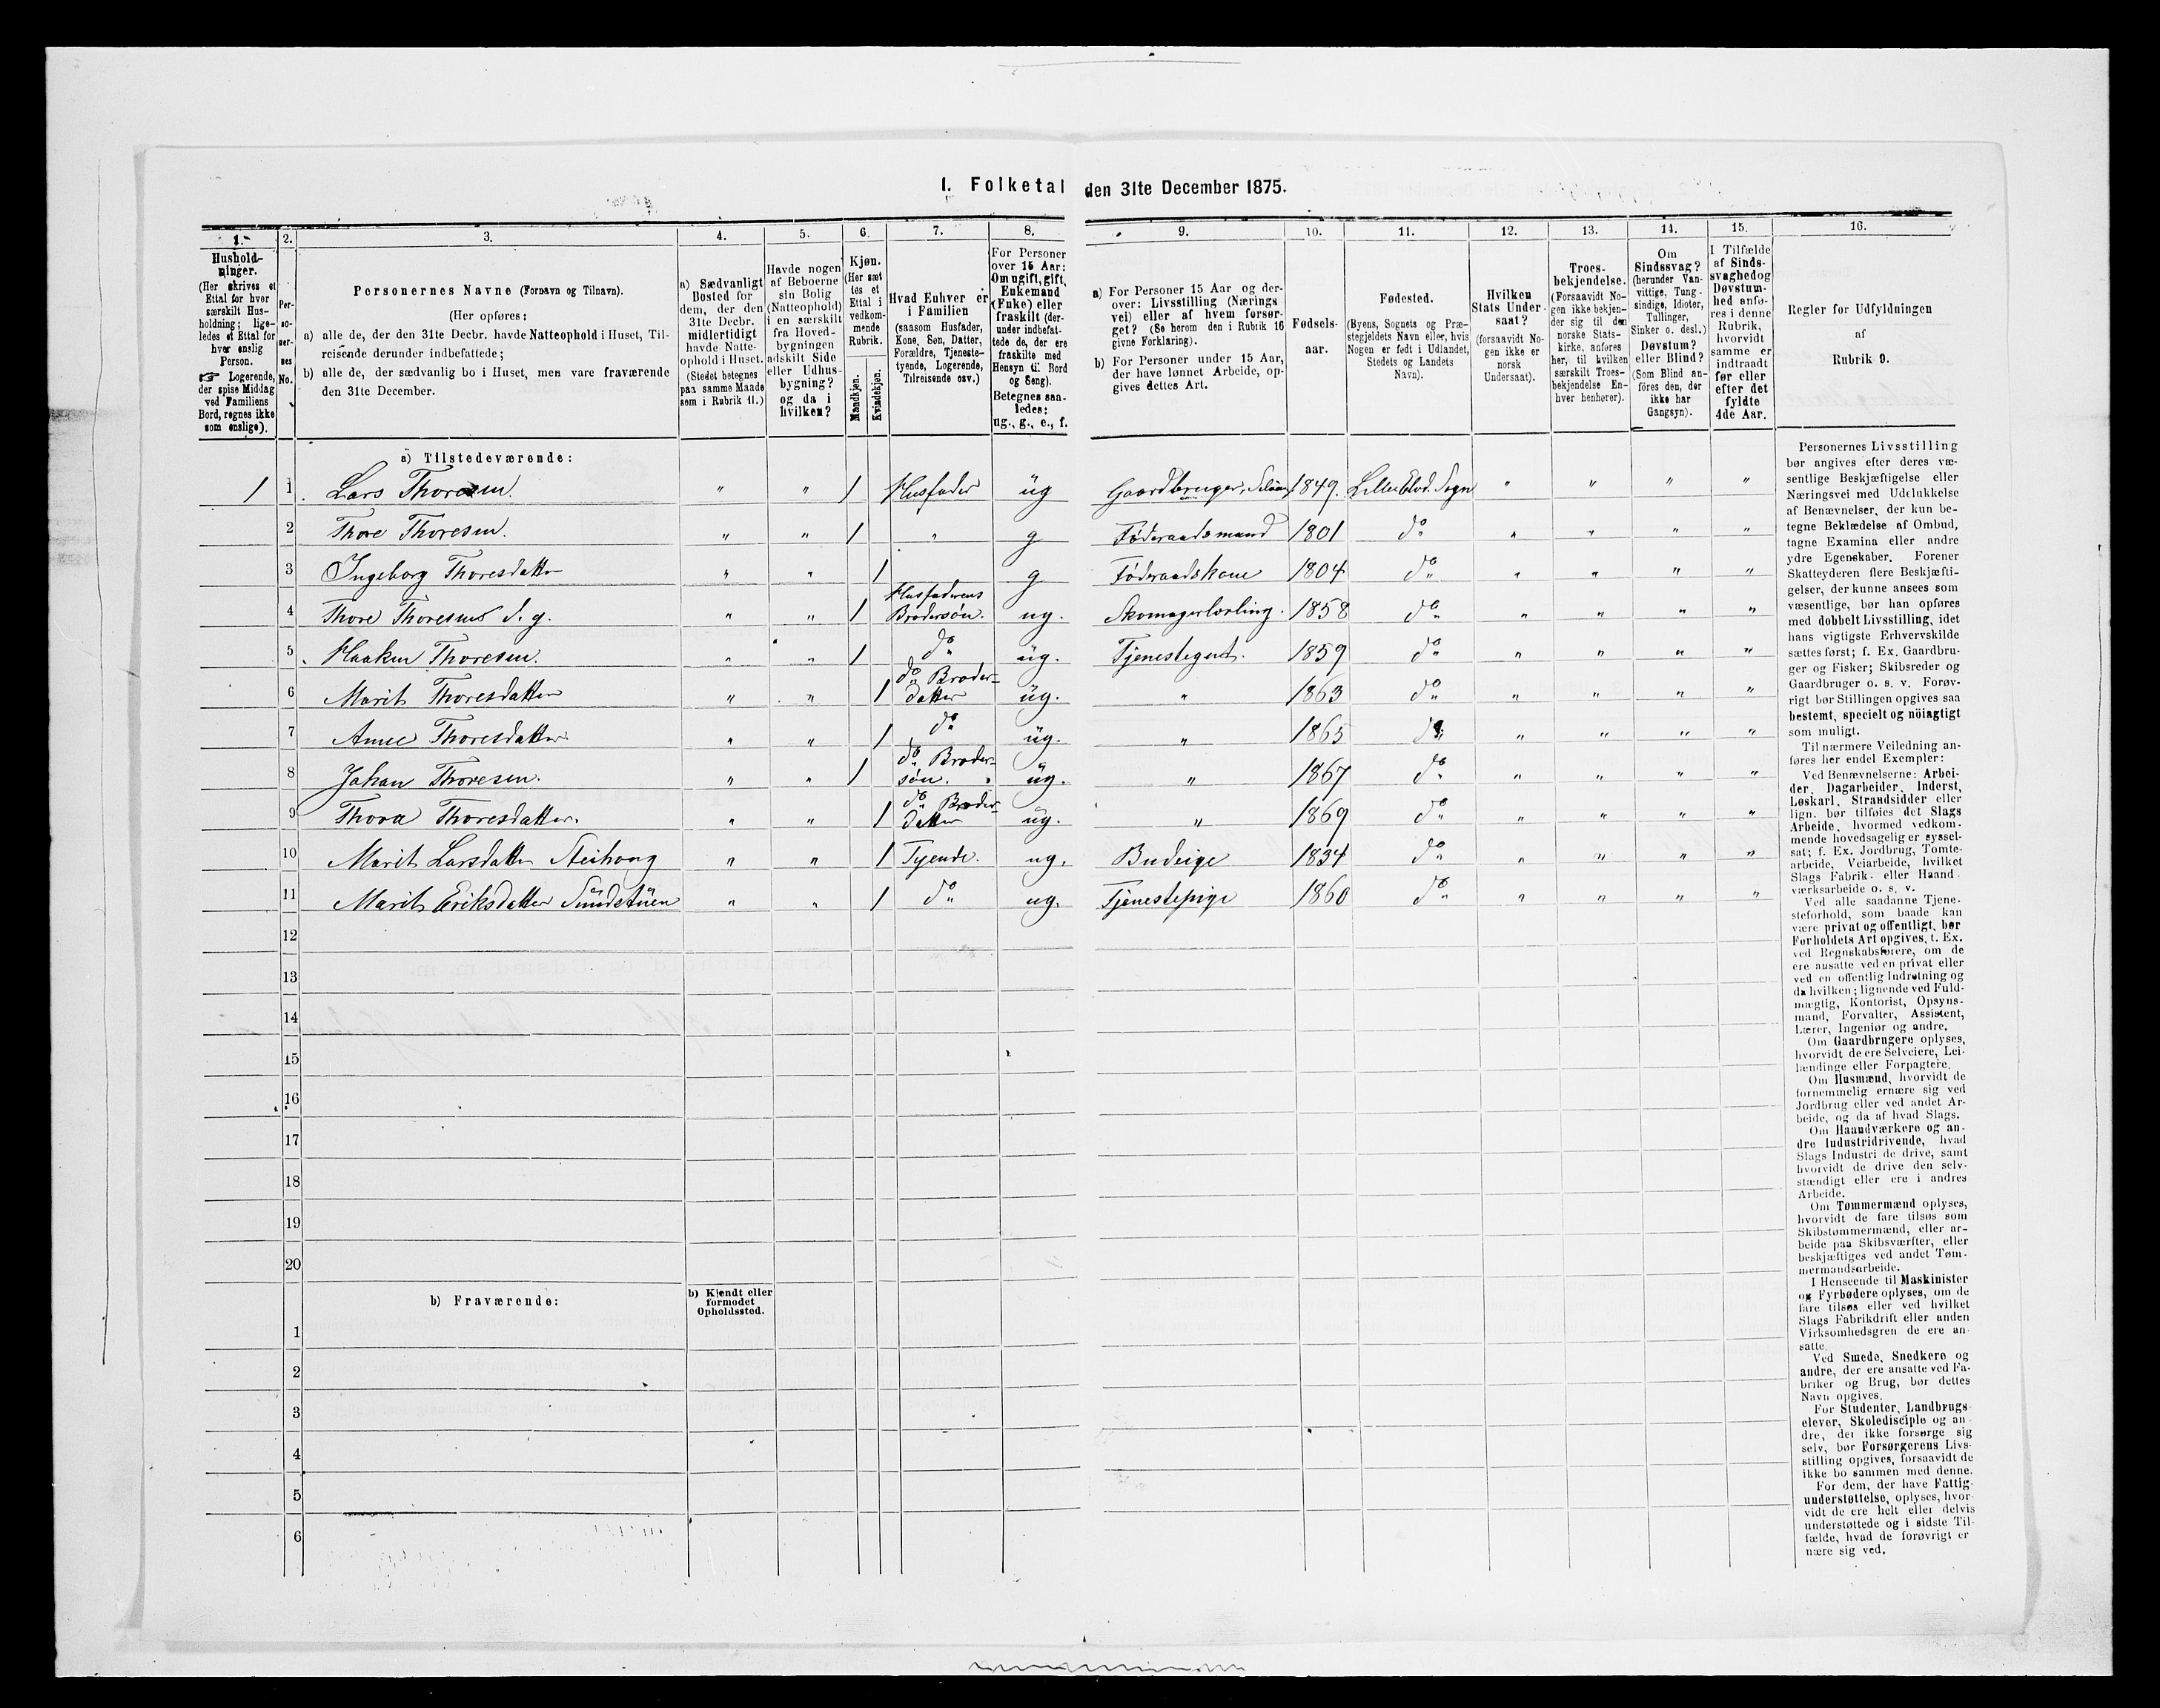 I. Folketal den 31te December 1875.
1. 2. 3. 4. 5. 6. 7. 8. 9. 10. 11. 12. 13. 14. 15. 16.
Husholdninger.
(Her skrives et
Ettal for hver
særskilt Hus-
holdning; lige-
ledes et Ettal for
hver enslig
Person.
☞ Logerende,
der spise Middag
ved Familiens
Bord, regnes ikke
som enslige).
Per-
so-
ner-
nes
No.
Personernes Navne (Fornavn og Tilnavn).
(Her opføres:
a) alle de, der den 31te Decbr. havde Natteophold i Huset, Til-
reisende derunder indbefattede;
b) alle de, der sædvanlig bo i Huset, men vare fraværende
den 31te December.
a) Sædvanligt
Bosted for
dem, der den
31te Decbr.
midlertidigt
havde Natte-
ophold i Huset.
(Stedet betegnes
paa samme Maade
som i Rubrik 11.)
Havde nogen
af Beboerne
sin Bolig
(Natteophold)
i en særskilt
fra Hoved-
bygningen
adskilt Side
eller Udhus-
bygning?
og da i
hvilken?
Kjøn.
(Her sæt
tes et
Ettal i
vedkom-
mende
Rubrik.
Mandkjøn.
Kvindekjøn.
Hvad Enhver er
i Familien
(saasom Husfader,
Kone, Søn, Datter,
Forældre, Tjeneste-
tyende, Logerende,
Tilreisende osv.)
For Personer
over 15 Aar:
Om ugift, gift,
Enkemand
(Enke) eller
fraskilt (der-
under indbefat-
tede de, der ere
fraskilte med
Hensyn til Bord
og Seng).
Betegnes saa-
ledes:
ug., g., e., f.
a) For Personer 15 Aar og der-
over: Livsstilling (Nærings
vei) eller af hvem forsør-
get? (Se herom den i Rubrik 16
givne Forklaring).
b) For Personer under 15 Aar,
der have lønnet Arbeide, op-
gives dettes Art.
Fødsels-
aar.
Fødested.
(Byens, Sognets og Præ-
stegjeldets Navn eller, hvis
Nogen er født i Udlandet,
Stedets og Landets
Navn).
Hvilken
Stats Under-
saat?
(forsaavidt No-
gen ikke er
norsk
Undersaat).
Troes-
bekjendelse.
(Forsaavidt No-
gen ikke bekjen-
der sig til den
norske Stats-
kirke, anføres
her, til hvilken
særskilt Troes-
bekjendelse En-
hver henhører).
Om
Sindssvag?
(herunder Van-
vittige, Tung-
sindige, Idioter,
Tullinger,
Sinker o. desl.)
Døvstum?
eller Blind?
(Som Blind an-
føres den, der
ikke har
Gangsyn).
I Tilfælde
af Sinds-
svaghed og
Døvstum-
hed anfø-
res i denne
Rubrik,
hvorvidt
samme er
indtraadt
før eller
efter det
fyldte
4de Aar.
Regler for Udfyldningen
af
Rubrik 9.
a) Tilstedeværende:
1 1 Lars Thoresen. " " 1 Husfader ug Gaardbruger, 1849. Lille Elvd. Sogn " " " "
2 Thore Thoresen. " " 1 " g Føderaadsmand 1801 do " " " "
3 Ingeborg Thoresdatter " " 1 g Føderaadskone 1804 do " " " "
4 Thore Thoresen " " 1 Husfaderens Brodersøn. ug. Skomagerlærling. 1858 do " " " "
5 Haaken Thoresen. " " 1 do ug. Tjenestegut. 1859 do " " " "
6 Marit Thoresdatter " " 1 do Broder-datter ug. " 1863 do " " " "
7 Anne Thoresdatter. " " 1 do ug. " 1865 do " " " "
8 Johan Thoresen. " " 1 do Broder-søn. ug. " 1867 do " " " "
9 Thora Thoresdatter. " " 1 do Broder-datter ug. " 1869 do " " " "
10 Marit Larsdatter " " 1 Tyende. ug. Budeige 1834 do " " " "
11 Marit Eriksdatter " " 1 do ug. Tjenestepige 1860 do " " " "
12
13
14
15
16
17
18
19
20
b) Fraværende:
b) Kjendt eller
formodet
Opholdssted.
1
2
3
4
5
6
Personernes Livsstilling
bør angives efter deres væ-
sentlige Beskjæftigelse eller
Næringsvei med Udelukkelse
af Benævnelser, der kun be-
tegne Beklædelse af Ombud,
tagne Examina eller andre
ydre Egenskaber. Forener
Skatteyderen flere Beskjæfti-
gelser, der kunne ansees som
væsentlige, bør han opføres
med dobbelt Livsstilling, idet
hans vigtigste Erhvervskilde
sættes først; f. Ex. Gaardbru-
ger og Fisker; Skibsreder og
Gaardbruger o. s. v. Forøv-
rigt bør Stillingen opgives saa
bestemt, specielt og nöiagtigt
som muligt.
Til nærmere Veiledning an-
føres her endel Exempler:
Ved Benævnelserne: Arbei-
der, Dagarbeider, Inderst,
Løskarl, Strandsidder eller
lign. bør tilføies det Slags
Arbeide, hvormed vedkom-
mende hovedsagelig er syssel-
sat; f. Ex. Jordbrug, Tomte-
arbeide, Veiarbeide, hvilket
Slags Fabrik- eller Haand-
værksarbeide o. s. v.
Ved alle saadanne Tjene-
steforhold, som baade kan
være privat og offentligt, bør
Forholdets Art opgives, t. Ex.
ved Regnskabsførere, om de
ere ansatte ved en privat eller
ved en offentlig Indretning og
da hvilken; lignende ved Fuld-
mægtig, Kontorist, Opsyns-
mand, Forvalter, Assistent,
Lærer, Ingeniør og andre.
Om Gaardbrugere oplyses,
hvorvidt de ere Selveiere, Lei-
lændinge eller Forpagtere.
Om Husmænd, hvorvidt de
fornemmelig ernære sig ved
Jordbrug eller ved andet Ar-
beide, og da af hvad Slags.
Om Haandværkere og an-
dre Industridrivende, hvad
Slags Industri de drive, samt
hvorvidt de drive den selv-
stændigt eller ere i andres
Arbeide.
Om Tømmermænd oplyses,
hvorvidt de fare tilsøs som
Skibstømmermænd, eller ar-
beide paa Skibsværfter, eller
beskjæftiges ved andet Tøm-
mermandsarbeide.
I Henseende til Maskinister
og Fyrbødere oplyses, om de
fare tilsøs eller ved hvilket
Slags Fabrikdrift eller anden
Virksomhedsgren de ere an-
satte.
Ved Smede, Snedkere og
andre, der ere ansatte ved Fa-
briker og Brug, bør dettes
Navn opgives.
For Studenter, Landbrugs-
elever, Skoledisciple og an-
dre, der ikke forsørge sig
selv, bør Forsørgerens Livs-
stilling opgives, forsaavidt de
ikke bo sammen med denne.
For dem, der have Fattig-
understøttelse, oplyses, hvor-
vidt de ere helt eller delvis
understøttede og i sidste Til-
fælde, hvad de forøvrigt er-
nære sig ved.